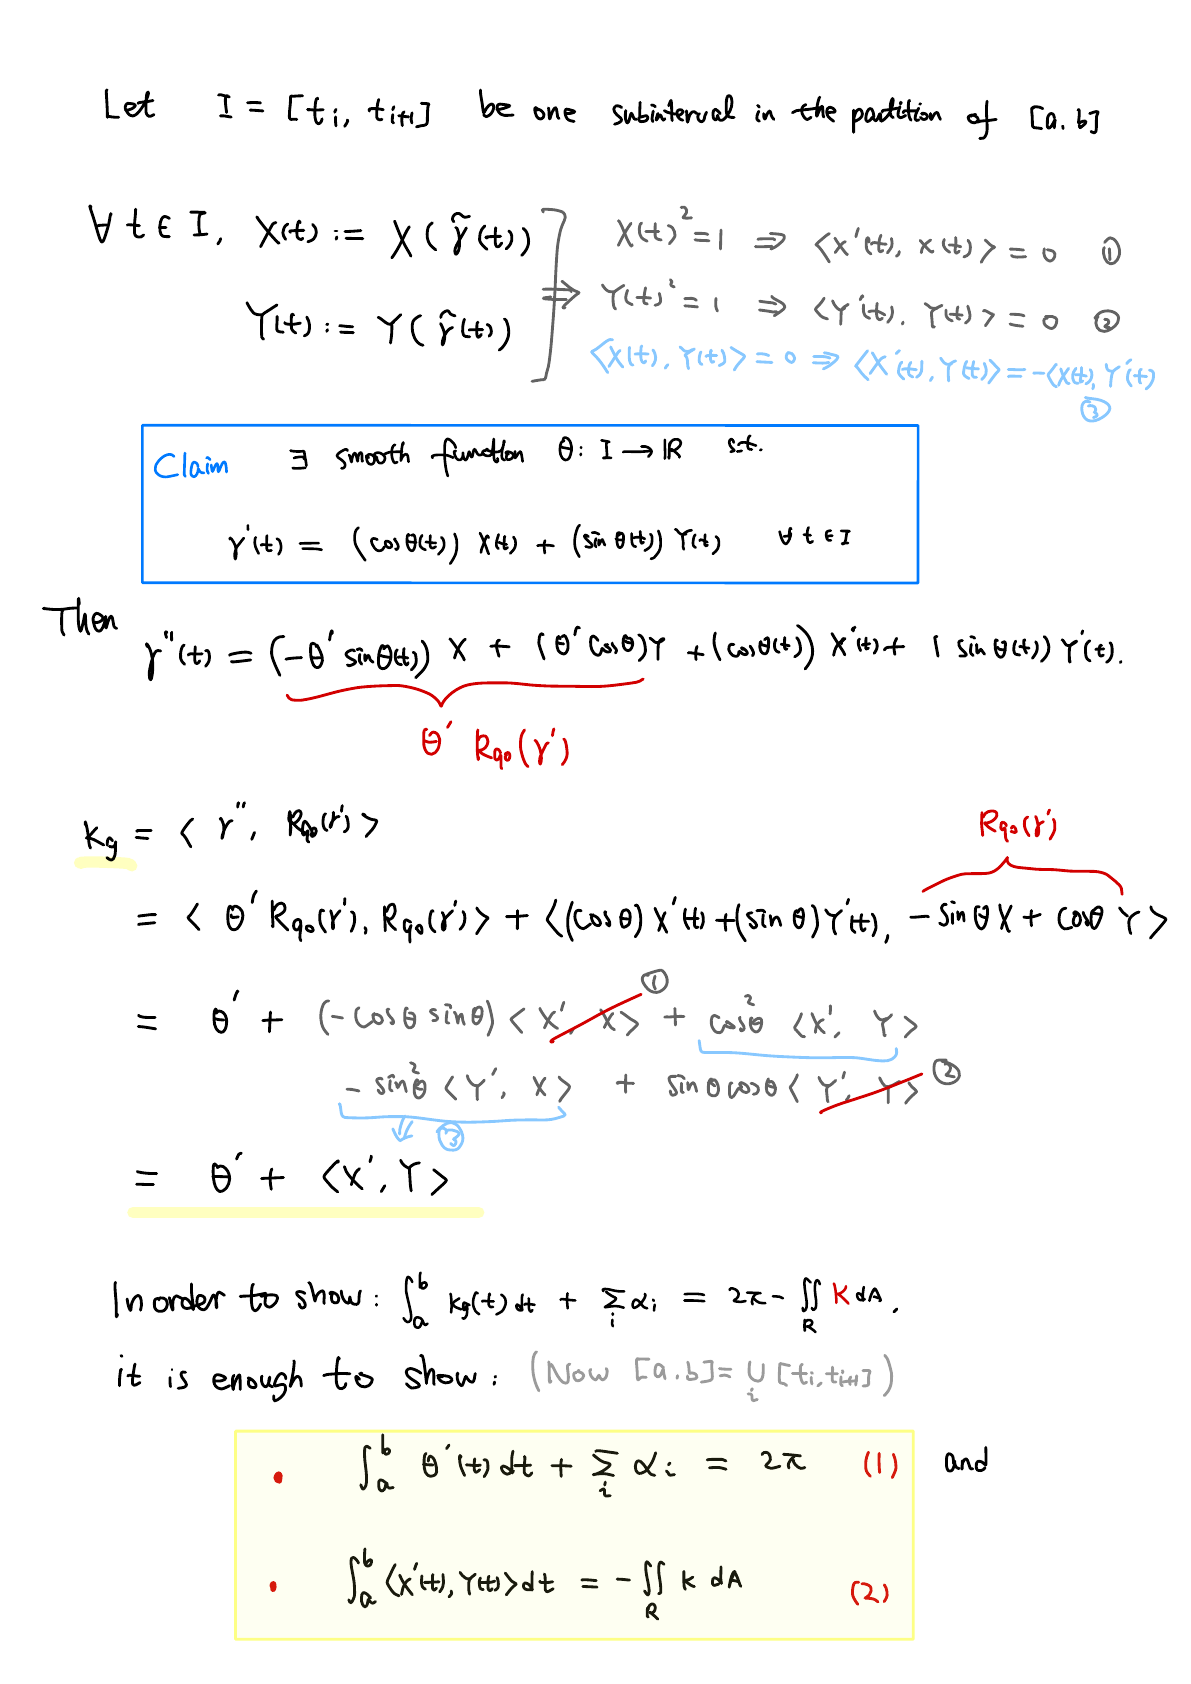 Let I = [tᵢ, tᵢ₊₁] be one subinterval in the partition of [a.b]
∀ t ∈ I, X(t) := X( γ̃(t)) X(t)² = 1 ⇒ ⟨X'(t), X(t)⟩ = 0 ①
Y(t) := Y( γ̃(t)) ⇒ Y(t)² = 1 ⇒ ⟨Y'(t). Y(t)⟩ = 0 ②
⟨X(t), Y(t)⟩ = 0 ⇒ ⟨X'(t), Y(t)⟩ = -⟨X(t), Y'(t)⟩
③
Claim ∃ smooth function θ: I → ℝ s.t.
γ'(t) = (cosθ(t)) X(t) + (sinθ(t)) Y(t) ∀ t ∈ I
Then
γ''(t) = (-θ' sinθ(t)) X + (θ' cosθ)Y + (cosθ(t)) X'(t) + (sinθ(t)) Y'(t).
θ' R₉₀(γ')
kg = ⟨ γ'', R₉₀(γ') ⟩
R₉₀(γ')
= ⟨ θ' R₉₀(γ'), R₉₀(γ') ⟩ + ⟨(cosθ) X'(t) + (sinθ) Y'(t), -sinθ X + cosθ Y ⟩
= θ' + (-cosθ sinθ) ⟨ X', X ⟩ ① + cos²θ ⟨X', Y ⟩
- sin²θ ⟨Y', X ⟩ + sinθ cosθ ⟨ Y', Y ⟩ ②
⇓ ③
= θ' + ⟨X', Y⟩
In order to show: ∫ₐᵇ kg(t) dt + Σᵢ αᵢ = 2π - ∬_R K dA,
it is enough to show: (Now [a.b] = ∪ᵢ [tᵢ, tᵢ₊₁])
• ∫ₐᵇ θ'(t) dt + Σᵢ αᵢ = 2π (1) and
• ∫ₐᵇ ⟨X'(t), Y(t)⟩ dt = - ∬_R K dA (2)